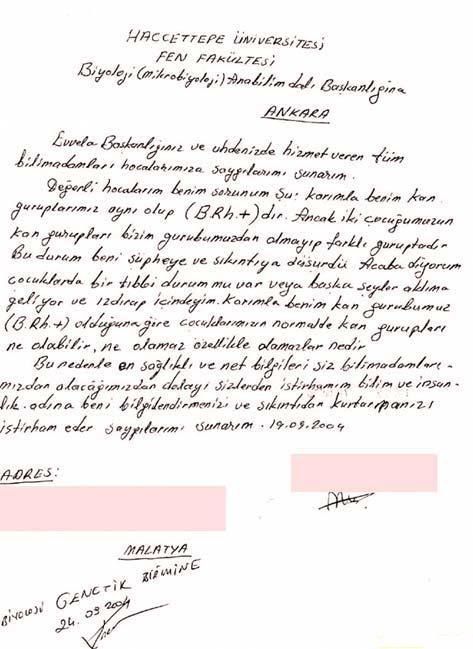 HACCETTEPE ÜNİVERSİTESİ
FEN FAKÜLTESİ
Biyoloji (mikrobiyoloji) Anabilim dalı Başkanlığına
ANKARA
Evvela Başkanlığınız ve uhdenizde hizmet veren tüm
bilimadamları hocalarımıza saygılarımı sunarım.
Değerli hocalarım benim sorunum şu: karımla benim kan
guruplarımız aynı olup (B.Rh.+) dır. Ancak iki çocuğumuzun
kan gurupları bizim gurubumuzdan olmayıp farklı guruptadır
Bu durum beni şüpheye ve sıkıntıya düşürdü Acaba diyorum
çocuklarda bir tıbbi durum mu var veya başka şeyler aklıma
geliyor ve ızdırap içindeyim. Karımla benim kan gurubumuz
(B.Rh.+) olduğuna göre çocuklarımızın normalde kan gurupları
ne olabilir, ne olamaz özellikle olamazlar nedir.
Bu nedenle en sağlıklı ve net bilgileri siz bilimadamları-
mızdan alacağımızdan dolayı sizlerden istirhamım bilim ve insan-
lık adına beni bilgilendirmenizi ve sıkıntıdan kurtarmanızı
istirham eder saygılarımı sunarım. 19.09.2004
ADRES:
MALATYA
GENETİK BİRİMİNE
24.09.2004